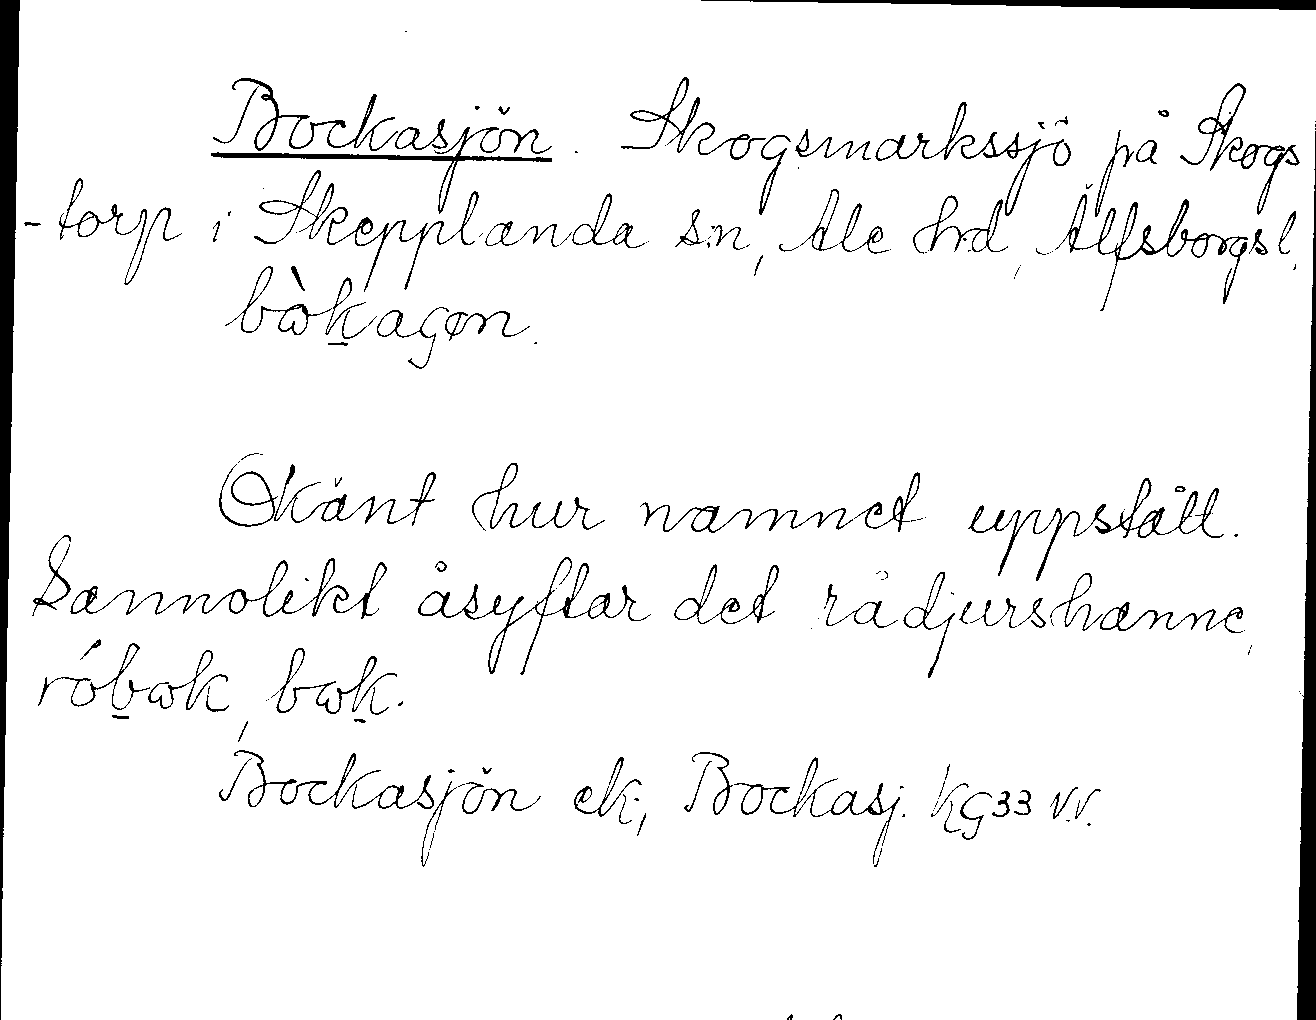 Bockasjön. Skogsmarkssjö på Skogs
-torp i Skepplanda sn, Ale hrd, Älfsborgs l.
Okänt hur namnet uppstått.
Sannolikt åsyftar det rådjurshanne,
Bockasjön ek, Bockasj. KG33 V.V.